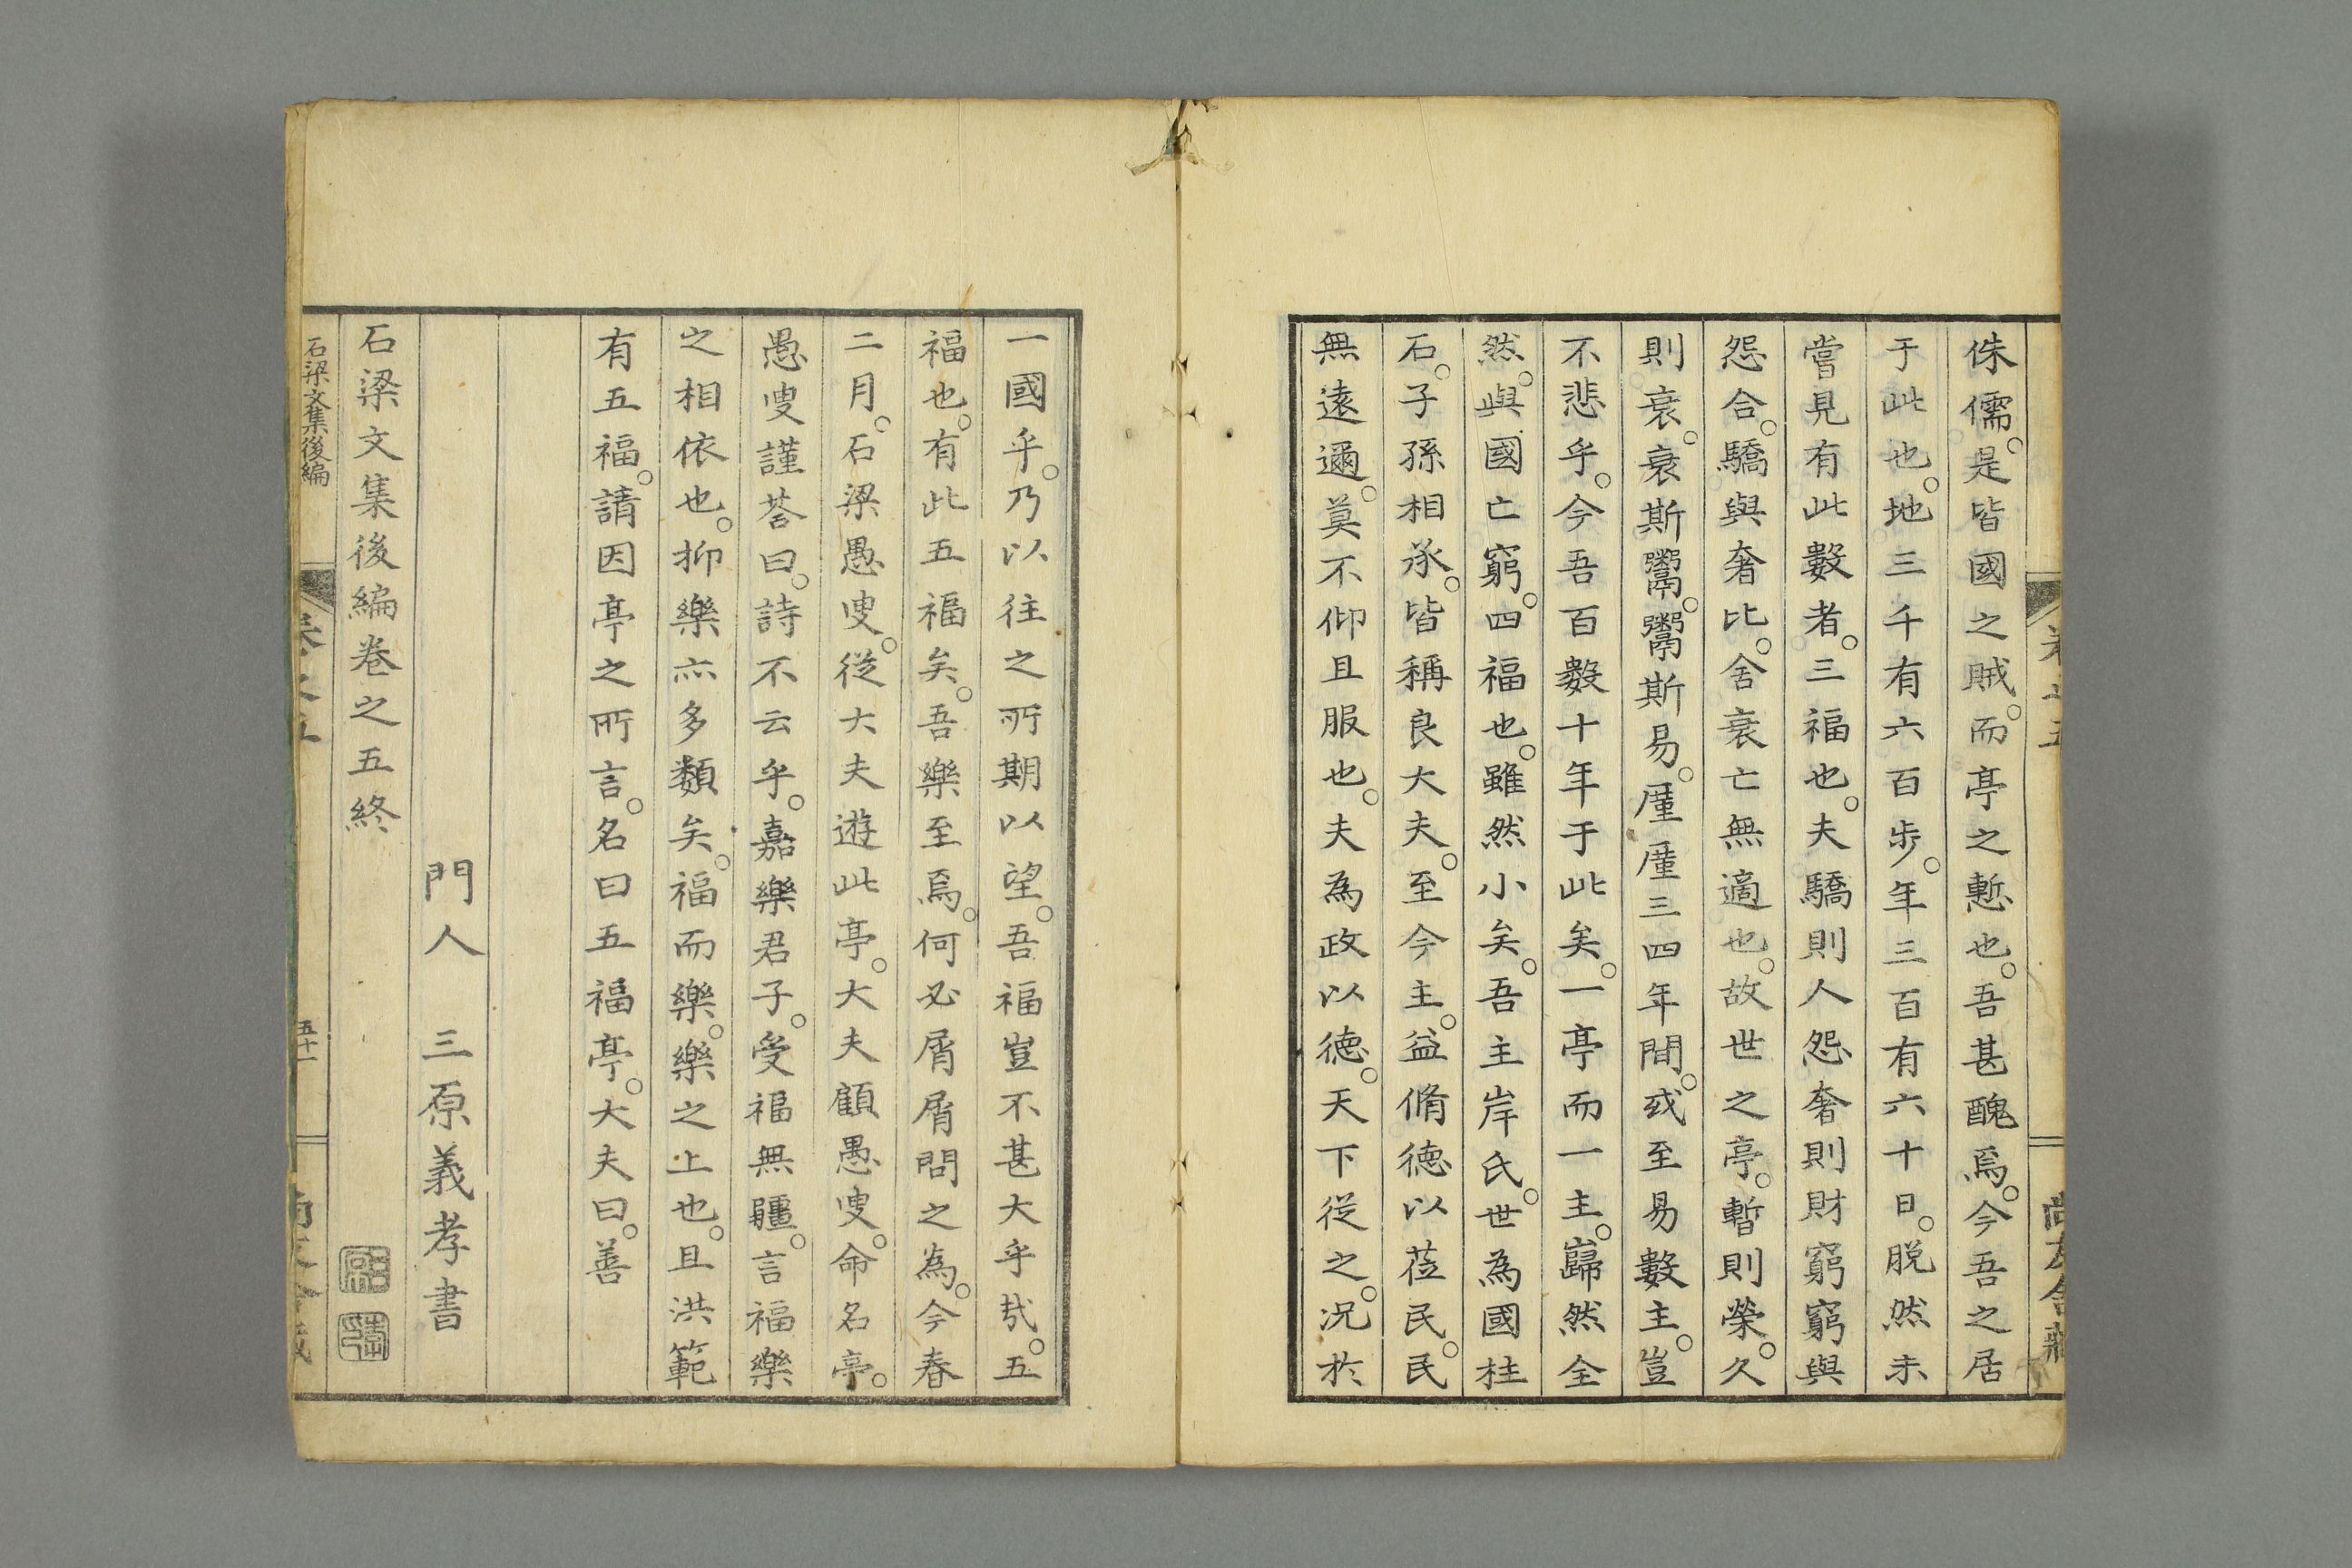 侏儒。是皆國之賊。而亭之慙也。吾甚醜焉。今吾之居
于此也。地三千有六百歩。年三百有六十日。脱然未
嘗見有此數者。三福也。夫驕則人怨奢則財窮窮與
怨合。驕與奢比。舍衰亡無適也。故世之亭。暫則榮。久
則衰。衰斯鬻。鬻斯易。廑廑三四年間。或至易數主。豈
不悲乎。今吾百數十年于此矣。一亭而一主。巋然全
然。與國亡窮。四福也。雖然小矣。吾主岸氏。世為國柱
石。子孫相承。皆稱良大夫。至今主。益脩德以莅民。民
無遠邇。莫不仰且服也。夫為政以德。天下從之。况於
一國乎。乃以往之所期以望。吾福豈不甚大乎哉。五
福也。有此五福矣。吾樂至焉。何必屑屑問之為。今春
二月。石梁愚叟。從大夫遊此亭。大夫顧愚叟。命名亭。
愚叟謹荅曰。詩不云乎。嘉樂君子。受福無疆。言福樂
之相依也。抑樂亦多類矣。福而樂。樂之上也。且洪範
有五福。請因亭之所言。名曰五福亭。大夫曰。善
門人 三原義孝書
石梁文集後編卷之五終
石梁文集後編
五十一